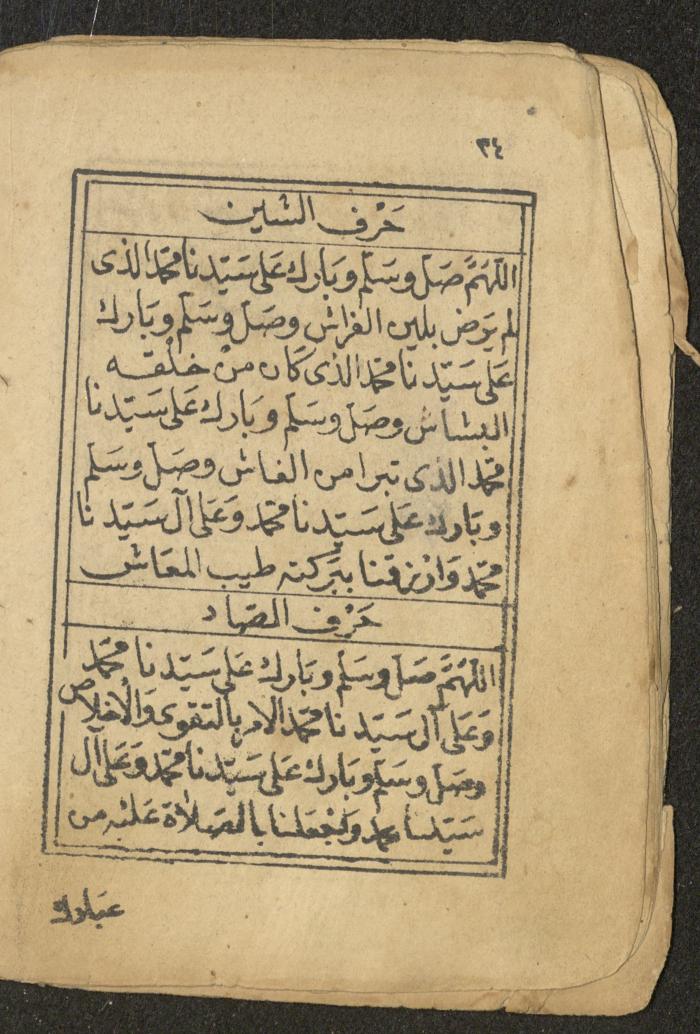 ٣٤
حَرْف الشين
اللّهَمَّ صَلّ وسَلّم وبَارك عَلى سَيّدنا محمّد الذى
لم يَرض بلين الفراش وصَلّ وسَلّم وبَارك
عَلى سَيّدنا محمّد الذى كَان منْ خلْقه
البشاش وصَلّ وسَلّم وبَارك عَلى سَيّدنا
محمّد الذى تبرا من الغاش وصَلّ وسَلّم
وبَارك عَلى سَيّدنا محمّد وَعَلى آل سَيّدنا
محمّد وَارْزقنا ببَركته طيب المعَاش
حَرْف الصَاد
اللّهَمَّ صَلّ وسَلّم وبَارك عَلى سَيّدنا محمّد
وَعَلى آل سَيّدنا محمّد الامر بالتقوى وَالْاخلاص
وصَلّ وسَلّم وبَارك عَلى سَيّدنا محمّد وَعَلى آل
سَيّدنا محمد وَاجْعَلنا بالصَلاة عَليْه من
عبادك